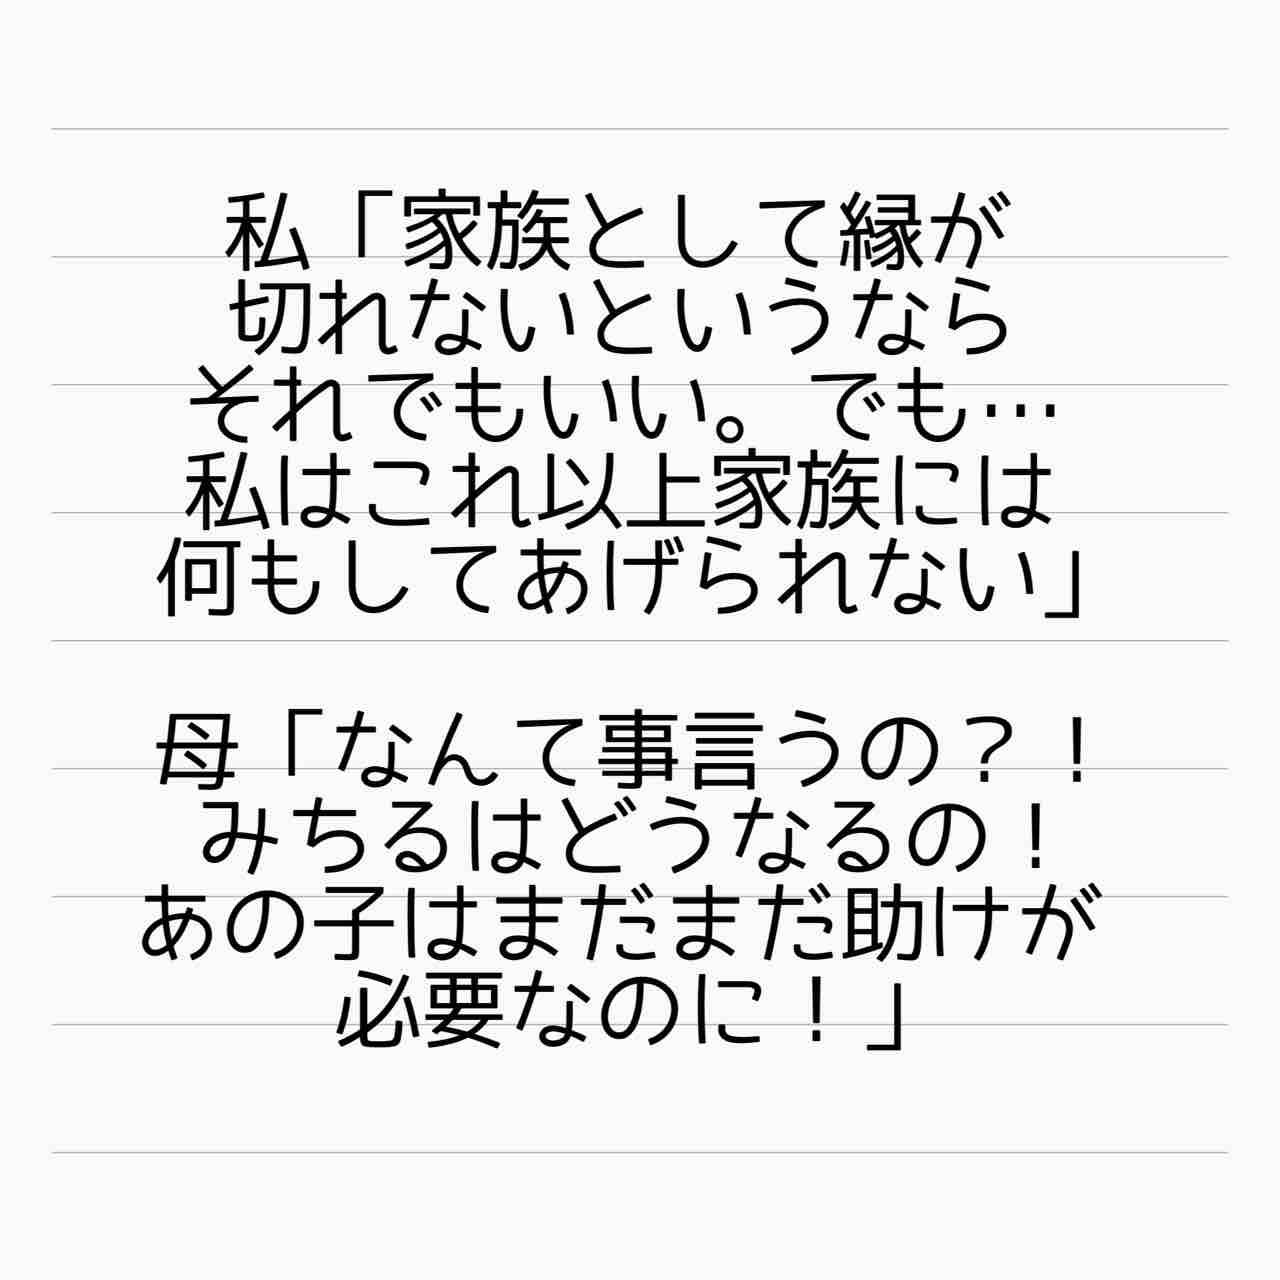 私「家族として縁が
切れないというなら
それでもいい。でも…
私はこれ以上家族には
何もしてあげられない」
母「なんて事言うの？！
みちるはどうなるの！
あの子はまだまだ助けが
必要なのに！」